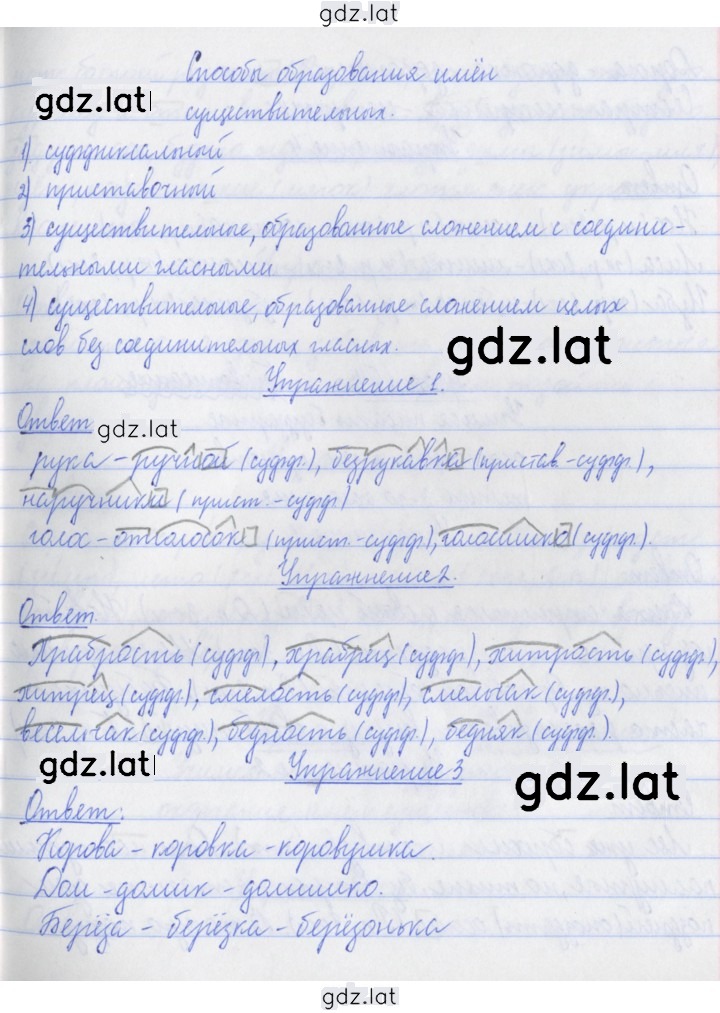 gdz.lat
Способы образования имён
gdz.lat
существительных.
1) суффиксальный
2) приставочный
3) существительные, образованные сложением с соедини-
тельными гласными
4) существительные, образованные сложением целых
слов без соединительных гласных.
gdz.lat
Упражнение 1.
Ответ
gdz.lat
рука - ручной (суфф.), безрукавка (пристав.-суфф.),
наручники (прист.-суфф)
голос - отголосок (прист.-суфф), голосишко (суфф.).
Упражнение 2.
Ответ
Храбрость (суфф), храбрец (суфф.), хитрость (суфф),
хитрец (суфф.), смелость (суфф), смельчак (суфф.),
весельчак (суфф), бедность (суфф.), бедняк (суфф.).
gdz.lat
Упражнение 3
gdz.lat
Ответ:
Корова - коровка - коровушка.
Дом - домик - домишко.
Берёза - берёзка - берёзонька
gdz.lat